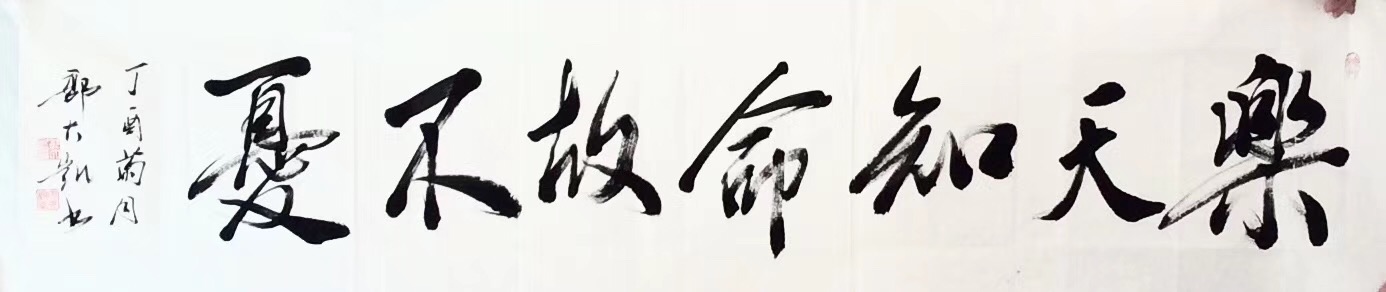 樂天知命故不憂
丁酉菊月
郭大凱书